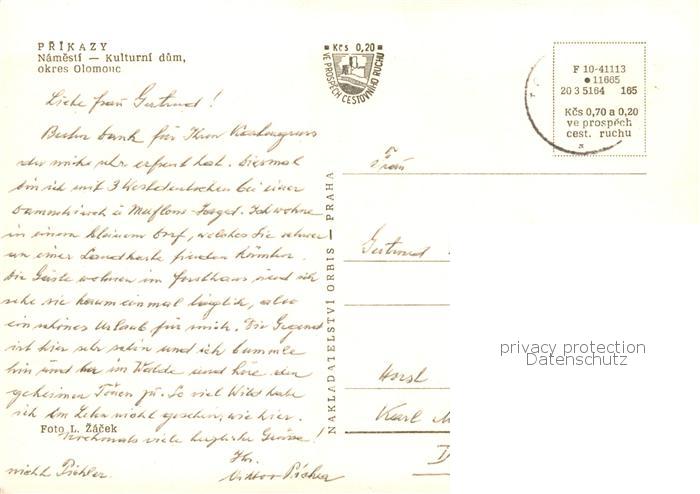 PŘÍKAZY
Náměstí — Kulturní dům,
okres Olomouc
■ Kčs 0,20 ■
VE PROSPĚCH CESTOVNÍHO RUCHU
F 10-41113
● 11665
20 3 5164 165
Kčs 0,70 a 0,20
ve prospěch
cest. ruchu
Liebe Frau Gertrud!
Besten Dank für Ihren Kartengruss
der mich sehr erfreut hat. Diesmal
bin ich mit 3 Westdeutschen bei einer
Damhirsch u Mufflons-Jagd. Ich wohne
in einem kleinen Dorf, welches Sie schwer
an einer Landkarte finden könnten.
Die Gäste wohnen im Forsthaus und ich
sehe sie kaum einmal täglich, also
ein schönes Urlaub für mich. Die Gegend
ist hier sehr schön und ich bummle
hin und her im Walde und höre den
geheimen Tönen zu. So viel Wild habe
ich im Leben nicht gesehen, wie hier.
Nochmals viele herzliche Grüsse!
Ihr
nicht Pichler.
Foto L. Žáček
NAKLADATELSTVÍ ORBIS — PRAHA
Frau
Gertrud
Horst
Karl M
privacy protection
Datenschutz